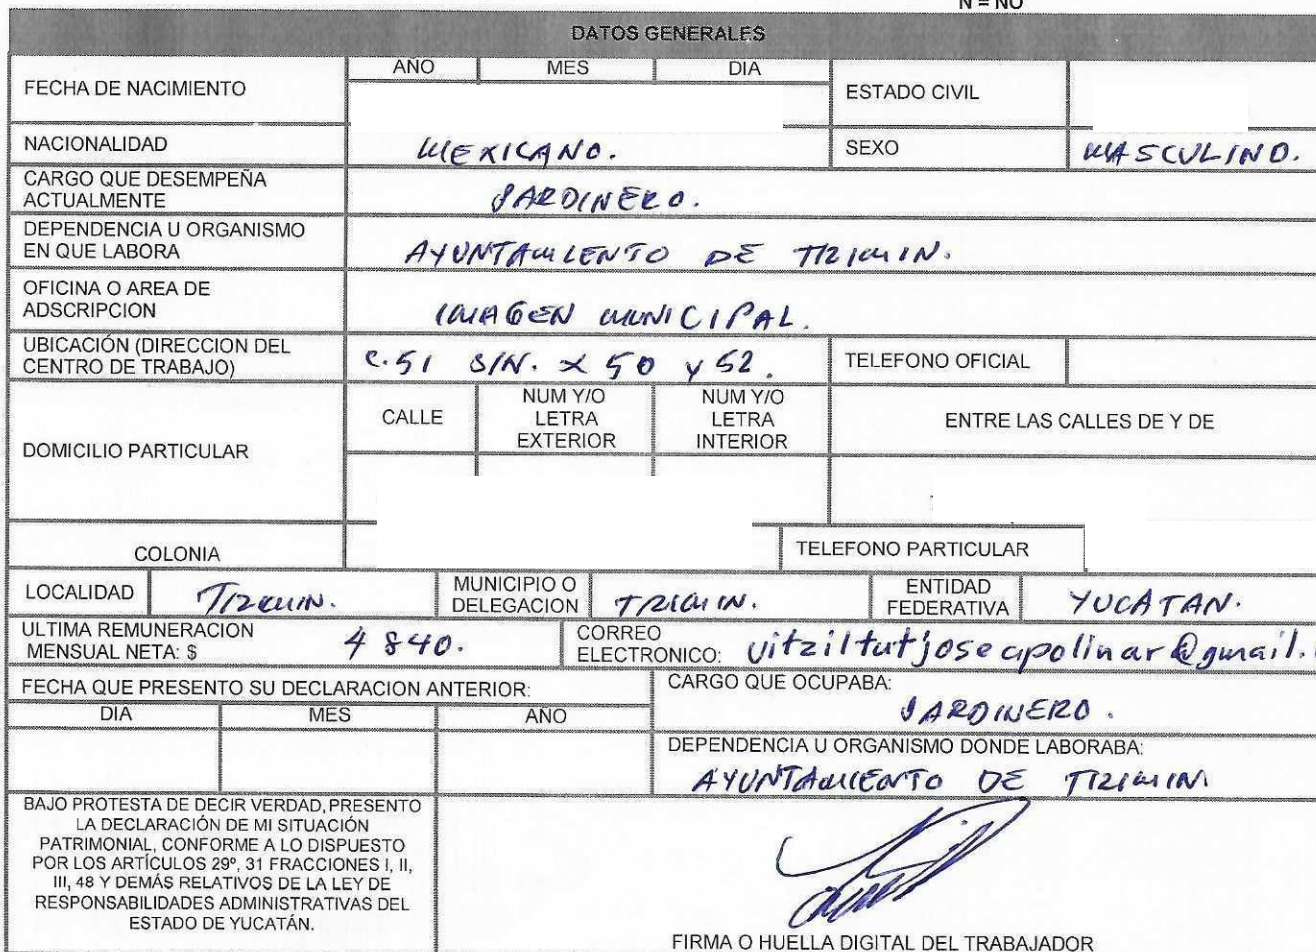 N = NO
DATOS GENERALES
FECHA DE NACIMIENTO
AÑO MES DIA
ESTADO CIVIL
NACIONALIDAD MEXICANO. SEXO MASCULINO.
CARGO QUE DESEMPEÑA
ACTUALMENTE
JARDINERO.
DEPENDENCIA U ORGANISMO
EN QUE LABORA
AYUNTAMIENTO DE TIZIMIN.
OFICINA O AREA DE
ADSCRIPCION
IMAGEN MUNICIPAL.
UBICACIÓN (DIRECCION DEL
CENTRO DE TRABAJO)
C.51 S/N. x 50 y 52.
TELEFONO OFICIAL
DOMICILIO PARTICULAR
CALLE
NUM Y/O
LETRA
EXTERIOR
NUM Y/O
LETRA
INTERIOR
ENTRE LAS CALLES DE Y DE
COLONIA TELEFONO PARTICULAR
LOCALIDAD TIZIMIN.
MUNICIPIO O
DELEGACION
TIZIMIN.
ENTIDAD
FEDERATIVA
YUCATAN.
ULTIMA REMUNERACION
MENSUAL NETA: $
4840.
CORREO
ELECTRONICO: vitziltutjoseapolinar@gmail.
FECHA QUE PRESENTO SU DECLARACION ANTERIOR:
DIA MES AÑO
CARGO QUE OCUPABA:
JARDINERO.
DEPENDENCIA U ORGANISMO DONDE LABORABA:
AYUNTAMIENTO DE TIZIMIN.
BAJO PROTESTA DE DECIR VERDAD, PRESENTO
LA DECLARACIÓN DE MI SITUACIÓN
PATRIMONIAL, CONFORME A LO DISPUESTO
POR LOS ARTÍCULOS 29º, 31 FRACCIONES I, II,
III, 48 Y DEMÁS RELATIVOS DE LA LEY DE
RESPONSABILIDADES ADMINISTRATIVAS DEL
ESTADO DE YUCATÁN.
FIRMA O HUELLA DIGITAL DEL TRABAJADOR